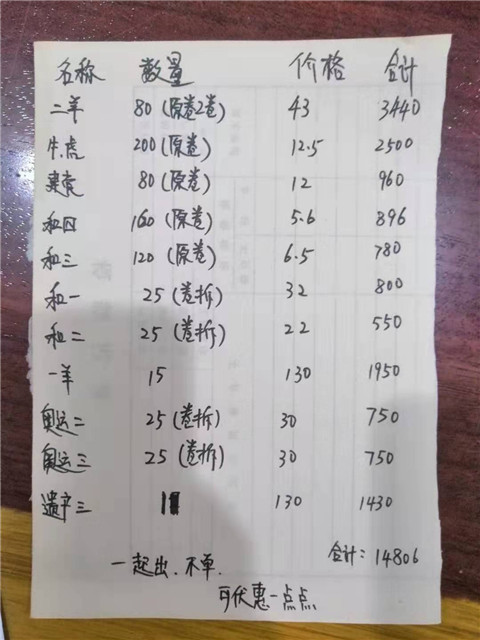 名称 数量 价格 合计
二羊 80(原卷2卷) 43 3440
牛.虎 200(原卷) 12.5 2500
建党 80(原卷) 12 960
和四 160(原卷) 5.6 896
和三 120(原卷) 6.5 780
和一 25(卷拆) 32 800
和二 25(卷拆) 22 550
一羊 15 130 1950
奥运二 25(卷拆) 30 750
奥运三 25(卷拆) 30 750
遗产三 11 130 1430
合计:14806
一起出.不单.
可优惠一点点